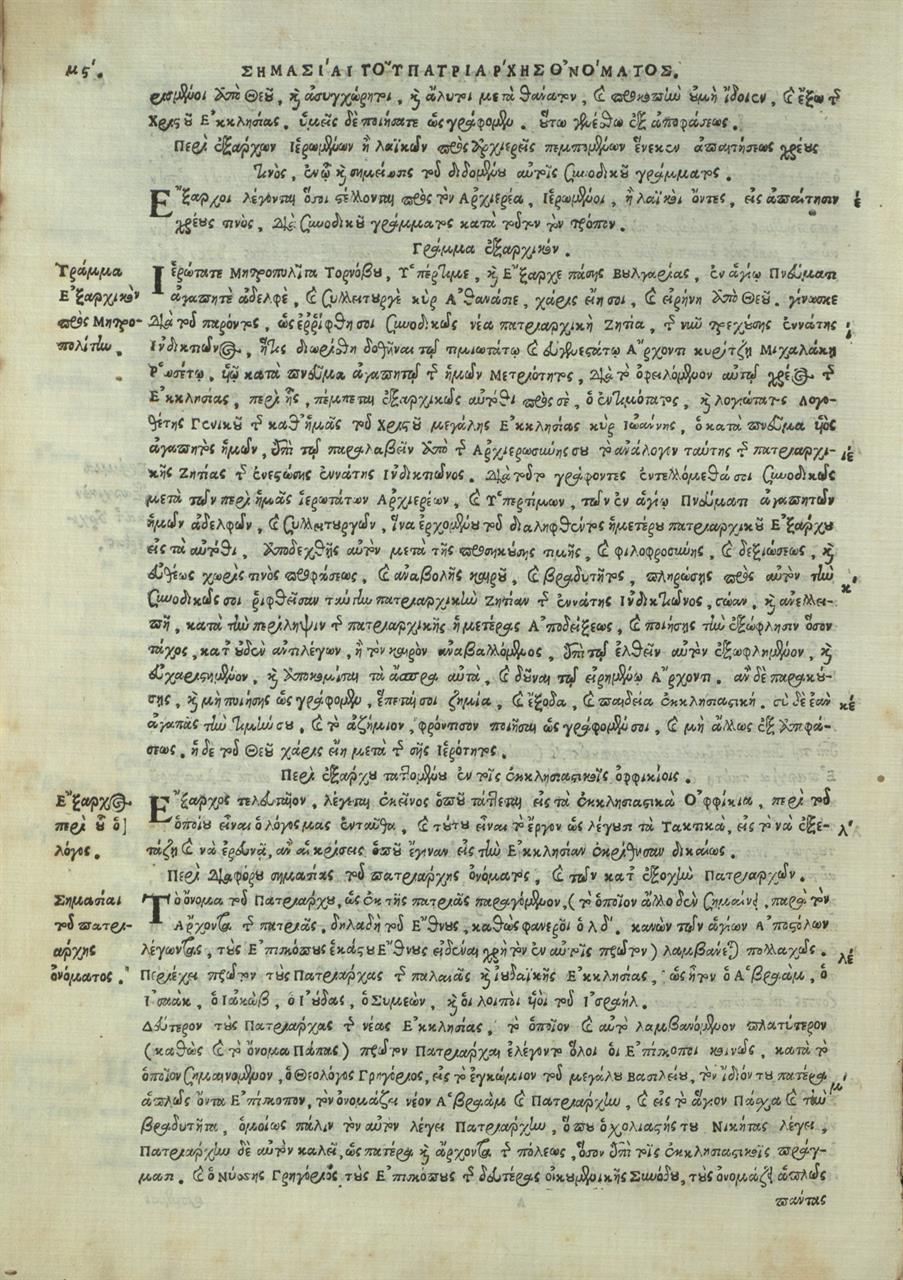 μϛʹ.
ΣΗΜΑΣΙΑΙ ΤΟΥ ΠΑΤΡΙΑΡΧΗΣ ΟΝΟΜΑΤΟΣ.
ρισμένοι ἀπὸ Θεοῦ, κ̀ ἀσυγχώρητοι, κ̀ ἄλυτοι μετὰ θάνατον, καὶ προκοπὴν οὐ μὴ ἴδοιεν, καὶ ἔξω τ͂
Χριστοῦ Ἐκκλησίας. ὑμεῖς δὲ ποιήσατε ὡς γράφομεν. οὕτω γενέσθω ἐξ ἀποφάσεως.
Περὶ ἐξάρχων Ἱερωμένων ἢ λαϊκῶν πρὸς Ἀρχιερεῖς πεμπομένων ἕνεκεν ἀπαιτήσεως χρέους
τινὸς, ἐν ᾧ κ̀ σημείωσις τοῦ διδομένου αὐτοῖς Συνοδικοῦ γράμματος.
Ἔξαρχοι λέγονται ὅσοι στέλλονται πρὸς τὸν Ἀρχιερέα, Ἱερωμένοι, ἢ λαϊκοὶ ὄντες, εἰς ἀπαίτησιν
χρέους τινὸς, Διὰ Συνοδικοῦ γράμματος κατὰ τοῦτον τὸν τρόπον.
Γράμμα ἐξαρχικόν.
Γράμμα
Ἐξαρχικὸν
πρὸς Μητρο-
πολίτην.
Ἱερώτατε Μητροπολίτα Τορνόβου, Ὑπέρτιμε, κ̀ Ἔξαρχε πάσης Βουλγαρίας, ἐν ἁγίῳ Πνεύματι
ἀγαπητὲ ἀδελφὲ, καὶ Συλλειτουργὲ κὺρ Ἀθανάσιε, χάρις εἴη σοι, καὶ εἰρήνη ἀπὸ Θεοῦ. γίνωσκε
Διὰ τοῦ παρόντος, ὡς ἐῤῥίφθη σοι Συνοδικῶς νέα πατριαρχικὴ Ζητία, τ͂ νῦν τρεχούσης ἐννάτης
Ἰνδικτιῶνος, ἥτις διωρίσθη δοθῆναι τῷ τιμιωτάτῳ καὶ εὐγενεστάτῳ Ἄρχοντι κυρίτζῃ Μιχαλάκῃ
Ῥωσέτῳ, υἱῷ κατὰ πνεῦμα ἀγαπητῷ τ͂ ἡμῶν Μετριότητος, Διὰ τὸ ὀφειλόμενον αὐτῷ χρέος τ͂
Ἐκκλησίας, περὶ ἧς, πέμπεται ἐξαρχικῶς αὐτόθι πρὸς σὲ, ὁ ἐντιμότατος, κ̀ λογιώτατος Λογο-
θέτης Γενικοῦ τ͂ καθ' ἡμᾶς τοῦ Χριστοῦ μεγάλης Ἐκκλησίας κὺρ Ἰωάννης, ὁ κατὰ πνεῦμα υἱὸς
ἀγαπητὸς ἡμῶν, ἐπὶ τῷ παραλαβεῖν ἀπὸ τ͂ Ἀρχιερωσύνης σου τὸ ἀνάλογον ταύτης τ͂ πατριαρχι-
κῆς Ζητίας τ͂ ἐνεστώσης ἐννάτης Ἰνδικτιῶνος. Διὰ τοῦτο γράφοντες ἐντελλόμεθά σοι Συνοδικῶς
μετὰ τῶν περὶ ἡμᾶς ἱερωτάτων Ἀρχιερέων, καὶ Ὑπερτίμων, τῶν ἐν ἁγίῳ Πνεύματι ἀγαπητῶν
ἡμῶν ἀδελφῶν, καὶ Συλλειτουργῶν, ἵνα ἐρχομένου τοῦ διαληφθέντος ἡμετέρου πατριαρχικοῦ Ἐξάρχου
εἰς τὰ αὐτόθι, ἀποδεχθῇς αὐτὸν μετὰ τῆς προσηκούσης τιμῆς, καὶ φιλοφροσύνης, καὶ δεξιώσεως, κ̀
εὐθέως χωρὶς τινὸς προφάσεως, καὶ ἀναβολῆς καιροῦ, καὶ βραδυτῆτος, πληρώσῃς πρὸς αὐτὸν τὴν
Συνοδικῶς σοι ῥιφθεῖσαν ταύτην πατριαρχικὴν Ζητίαν τ͂ ἐννάτης Ἰνδικτιῶνος, σώαν, κ̀ ἀνελλει-
πῆ, κατὰ τὴν περίληψιν τ͂ πατριαρχικῆς ἡμετέρας Ἀποδείξεως, καὶ ποιήσῃς τὴν ἐξώφλησιν ὅσον
τάχος, κατ' οὐδὲν ἀντιλέγων, ἢ τὸν καιρὸν ἀναβαλλόμενος, ἐπὶ τῷ ἐλθεῖν αὐτὸν ἐξωφλημένον, κ̀
εὐχαριστημένον, κ̀ ἀποκομίσαι τὰ ἄσπρα αὐτὰ, καὶ δοῦναι τῷ εἰρημένῳ Ἄρχοντι. ἂν δὲ παρακού-
σῃς, κ̀ μὴ ποιήσῃς ὡς γράφομεν, ἕπεταί σοι ζημία, καὶ ἔξοδα, καὶ παιδεία ἐκκλησιαστική. σὺ δὲ ἐὰν
ἀγαπᾷς τὴν τιμήν σου, καὶ τὸ ἀζήμιον, φρόντισον ποιῆσαι ὡς γράφομέν σοι, καὶ μὴ ἄλλως ἐξ ἀποφά-
σεως. ἡ δὲ τοῦ Θεοῦ χάρις εἴη μετὰ τ͂ σῆς Ἱερότητος.
Περὶ ἐξάρχου ταττομένου ἐν τοῖς ἐκκλησιαστικοῖς ὀφφικίοις.
Ἔξαρχος
περὶ οὗ ὁ
λόγος.
Ἔξαρχος τελευταῖον, λέγεται ἐκεῖνος ὁποῦ τάττεται εἰς τὰ ἐκκλησιαστικὰ Ὀφφίκια, περὶ τοῦ
ὁποίου εἶναι ὁ λόγος μας ἐνταῦθα, καὶ τούτου εἶναι τὸ ἔργον ὡς λέγουσι τὰ Τακτικὰ, εἰς τὸ νὰ ἐξε-
τάζῃ καὶ νὰ ἐρευνᾷ, ἂν αἱ κρίσεις ὁποῦ ἔγιναν εἰς τὴν Ἐκκλησίαν ἐκρίθησαν δικαίως.
Περὶ Διαφόρου σημασίας τοῦ πατριάρχης ὀνόματος, καὶ τῶν κατ' ἐξοχὴν Πατριαρχῶν.
Σημασίαι
τοῦ πατρι-
άρχης
ὀνόματος.
Τὸ ὄνομα τοῦ Πατριάρχου, ὡς ἐκ τῆς πατριᾶς παραγόμενον, (τὸ ὁποῖον ἄλλο δὲν σημαίνει, παρὰ τὸν
Ἄρχοντα τ͂ πατριᾶς, δηλαδὴ τοῦ Ἔθνους, καθὼς φανεροῖ ὁ λδʹ. κανὼν τῶν ἁγίων Ἀποστόλων
λέγωντας, τοὺς Ἐπισκόπους ἑκάστου Ἔθνους εἰδέναι χρὴ τὸν ἐν αὐτοῖς πρῶτον) λαμβάνεται πολλαχῶς.
Περιέχει πρῶτον τοὺς Πατριάρχας τ͂ παλαιᾶς κ̀ ἰουδαϊκῆς Ἐκκλησίας, ὡς ἦτον ὁ Ἀβραὰμ, ὁ
Ἰσαὰκ, ὁ Ἰακὼβ, ὁ Ἰούδας, ὁ Συμεὼν, κ̀ οἱ λοιποὶ υἱοὶ τοῦ Ἰσραήλ.
Δεύτερον τοὺς Πατριάρχας τ͂ νέας Ἐκκλησίας, τὸ ὁποῖον καὶ αὐτὸ λαμβανόμενον πλατύτερον
(καθὼς καὶ τὸ ὄνομα Πάπας) πρῶτον Πατριάρχαι ἐλέγοντο ὅλοι οἱ Ἐπίσκοποι κοινῶς, κατὰ τὸ
ὁποῖον σημαινόμενον, ὁ Θεολόγος Γρηγόριος, εἰς τὸ ἐγκώμιον τοῦ μεγάλου Βασιλείου, τὸν ἴδιόν του πατέρα
ἁπλῶς ὄντα Ἐπίσκοπον, τὸν ὀνομάζει νέον Ἀβραὰμ καὶ Πατριάρχην, καὶ εἰς τὸ ἅγιον Πάσχα καὶ τὴν
βραδυτῆτα, ὁμοίως πάλιν τὸν αὐτὸν λέγει Πατριάρχην, ὁποῦ ὁ σχολιαστής του Νικήτας λέγει,
Πατριάρχην δὲ αὐτὸν καλεῖ, ὡς πατέρα κ̀ ἄρχοντα τ͂ πόλεως, ὅσον ἐπὶ τοῖς ἐκκλησιαστικοῖς πράγ-
μασι. καὶ ὁ Νύσσης Γρηγόριος τοὺς Ἐπισκόπους τ͂ δευτέρας οἰκουμενικῆς Συνόδου, τοὺς ὀνομάζει ἁπλῶς
πάντας
έ
ιέ
κ
κέ
λʹ
λέ
μʹ